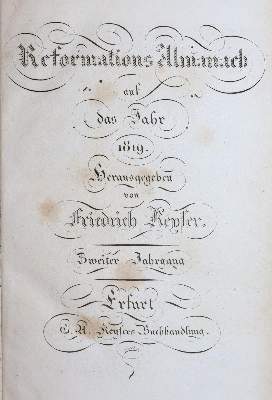 Reformations Almanach
auf
das Jahr
1819.
Herausgegeben
von
Friedrich Keyser.
Zweiter Jahrgang
Erfurt
G. A. Keysers Buchhandlung.